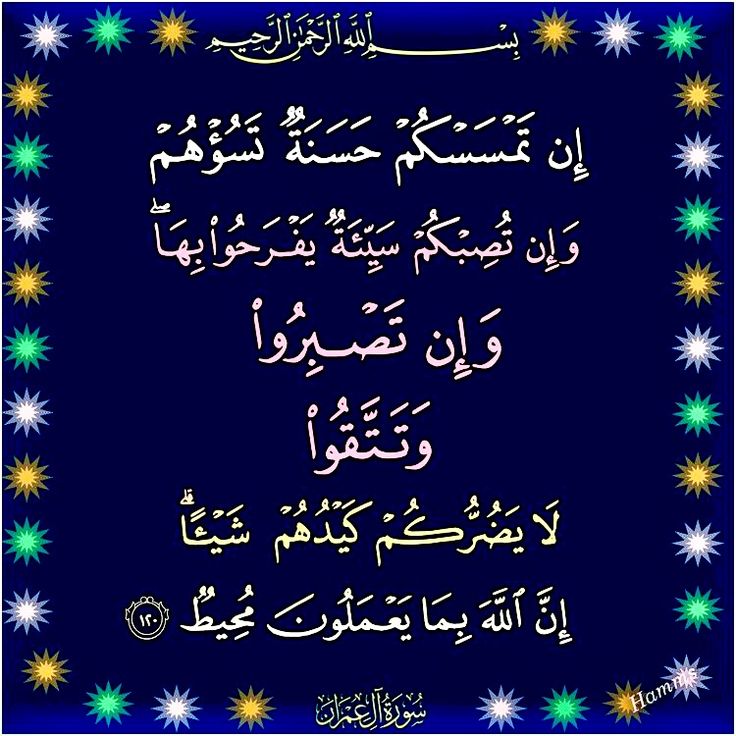 بِسْمِ ٱللَّهِ ٱلرَّحْمَٰنِ ٱلرَّحِيمِ
إِن تَمْسَسْكُمْ حَسَنَةٌ تَسُؤْهُمْ
وَإِن تُصِبْكُمْ سَيِّئَةٌ يَفْرَحُوا۟ بِهَا ۖ
وَإِن تَصْبِرُوا۟
وَتَتَّقُوا۟
لَا يَضُرُّكُمْ كَيْدُهُمْ شَيْـًٔا ۗ
إِنَّ ٱللَّهَ بِمَا يَعْمَلُونَ مُحِيطٌ ١٢٠
سُورَةُ آلِ عِمْرَانَ
Hamms